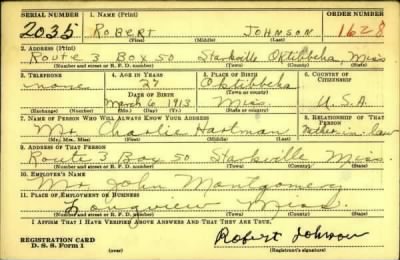 SERIAL NUMBER 1. NAME (Print) ORDER NUMBER
2035 ROBERT JOHNSON 1628
(First) (Middle) (Last)
2. ADDRESS (Print)
Route 3 Box 50 Starkville Oktibbeha, Miss
(Number and street or R. F. D. number) (Town) (County) (State)
3. TELEPHONE 4. AGE IN YEARS 5. PLACE OF BIRTH 6. COUNTRY OF CITIZENSHIP
none 27 Oktibbeha
DATE OF BIRTH (Town or county)
March 6, 1913 Miss U.S.A.
(Exchange) (Number) (Mo.) (Day) (Yr.) (State or country)
7. NAME OF PERSON WHO WILL ALWAYS KNOW YOUR ADDRESS 8. RELATIONSHIP OF THAT PERSON
Mr. Charlie Hartman Father-in-law
(Mr., Mrs., Miss) (First) (Middle) (Last)
9. ADDRESS OF THAT PERSON
Route 3 Box 50 Starkville Miss.
(Number and street or R. F. D. number) (Town) (County) (State)
10. EMPLOYER'S NAME
Mr. John Montgomery
11. PLACE OF EMPLOYMENT OR BUSINESS
Longview Miss.
(Number and street or R. F. D. number) (Town) (County) (State)
I AFFIRM THAT I HAVE VERIFIED ABOVE ANSWERS AND THAT THEY ARE TRUE.
REGISTRATION CARD
D. S. S. Form 1 Robert Johnson
(over) (Registrant's signature)